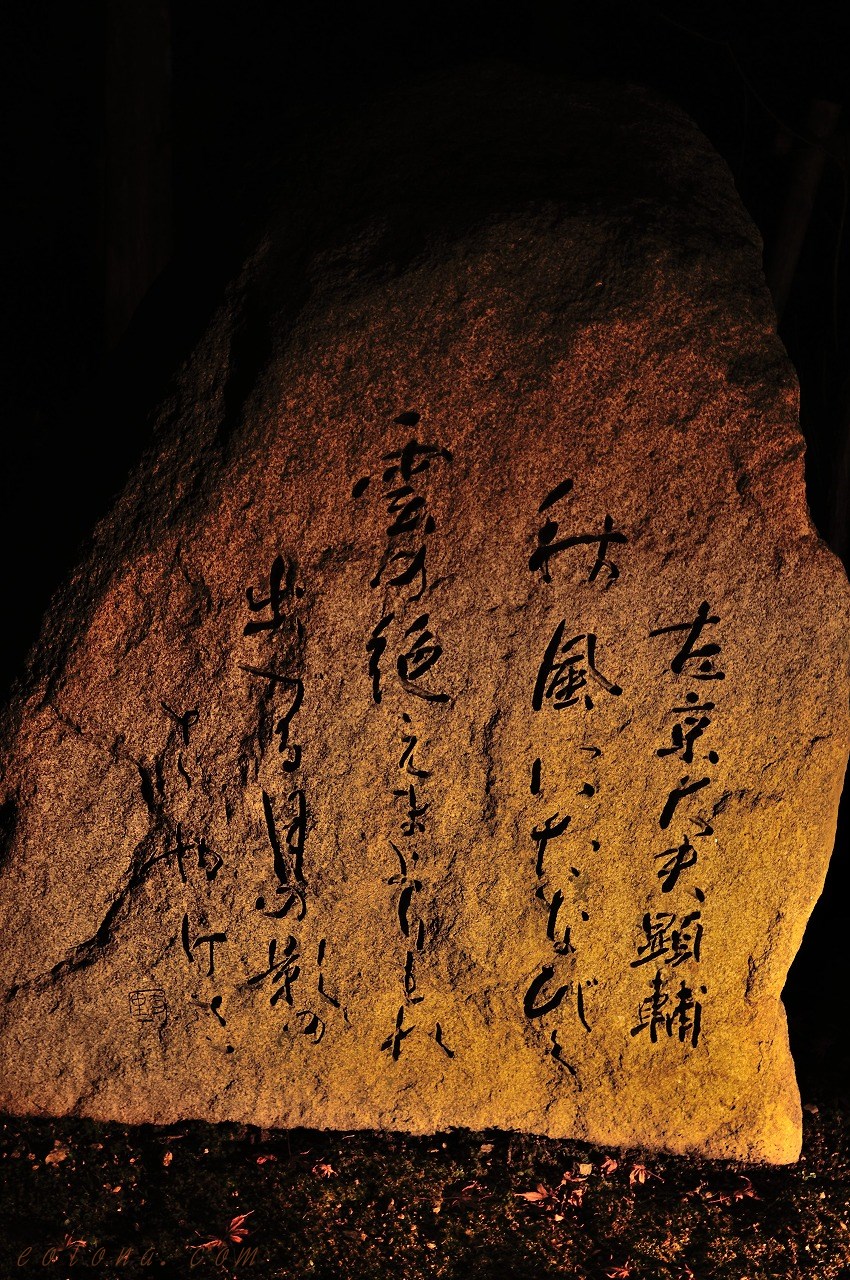 左京大夫顕輔
秋風にたなびく
雲の絶えまよりもれ
出づる月の影の
さやけさ
eotona.com